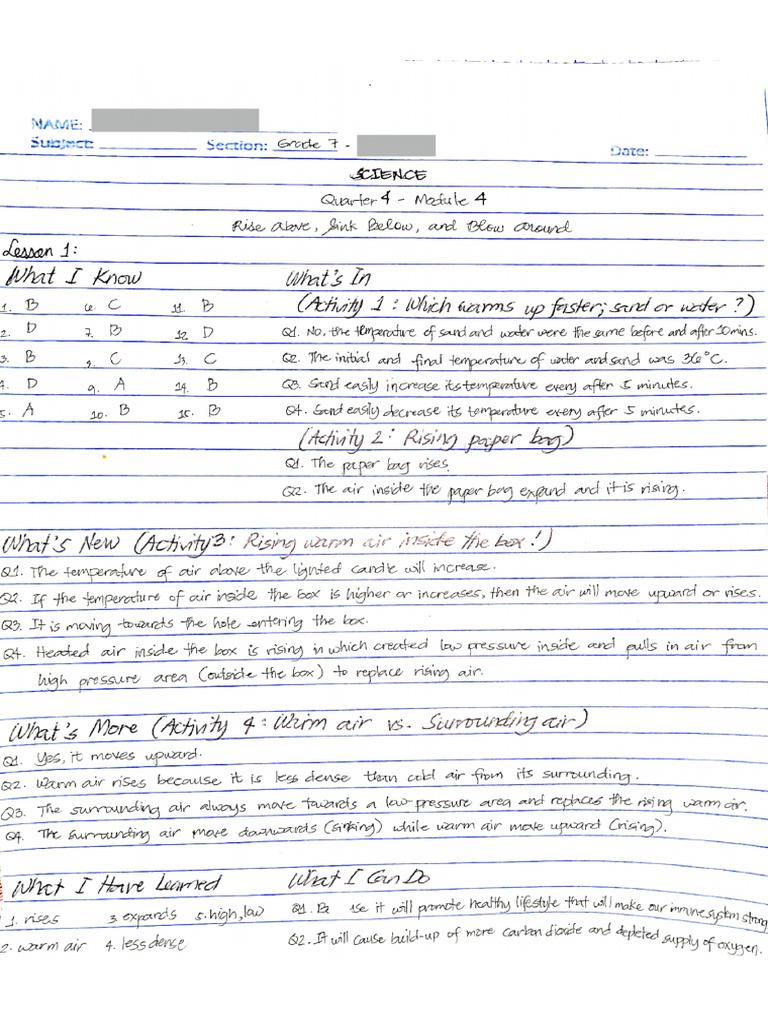 NAME:
Subject: Section: Grade 7 - Date:
SCIENCE
Quarter 4 - Module 4
Rise above, Sink Below, and Blow Around
Lesson 1:
What I Know
1. B 6. C 11. B
2. D 7. B 12. D
3. B 8. C 13. C
4. D 9. A 14. B
5. A 10. B 15. B
What's In
(Activity 1: Which warms up faster; sand or water?)
Q1. No, the temperature of sand and water were the same before and after 10 mins.
Q2. The initial and final temperature of water and sand was 36°C.
Q3. Sand easily increase its temperature every after 5 minutes.
Q4. Sand easily decrease its temperature every after 5 minutes.
(Activity 2: Rising paper bag)
Q1. The paper bag rises.
Q2. The air inside the paper bag expand and it is rising.
What's New (Activity 3: Rising warm air inside the box!)
Q1. The temperature of air above the lighted candle will increase.
Q2. If the temperature of air inside the box is higher or increases, then the air will move upward or rises.
Q3. It is moving towards the hole entering the box.
Q4. Heated air inside the box is rising in which created low pressure inside and pulls in air from
high pressure area (outside the box) to replace rising air.
What's More (Activity 4: Warm air vs. Surrounding air)
Q1. Yes, it moves upward.
Q2. Warm air rises because it is less dense than cold air from its surrounding.
Q3. The surrounding air always move towards a low pressure area and replaces the rising warm air.
Q4. The surrounding air move downwards (sinking) while warm air move upward (rising).
What I Have Learned
1. rises 3. expands 5. high, low
2. warm air 4. less dense
What I Can Do
Q1. it will promote healthy lifestyle that will make our immune system strong
Q2. It will cause build-up of more carbon dioxide and depleted supply of oxygen.